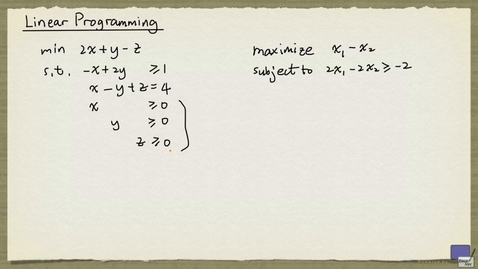 Linear Programming
min 2x+y-z
s.t. -x+2y ≥1
x-y+z=4
x ≥0
y ≥0
z≥0
maximize x₁-x₂
subject to 2x₁-2x₂≥-2